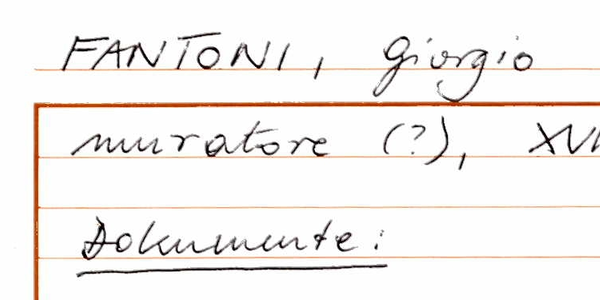 FANTONI, Giorgio
muratore (?), XVI
Dokumente: